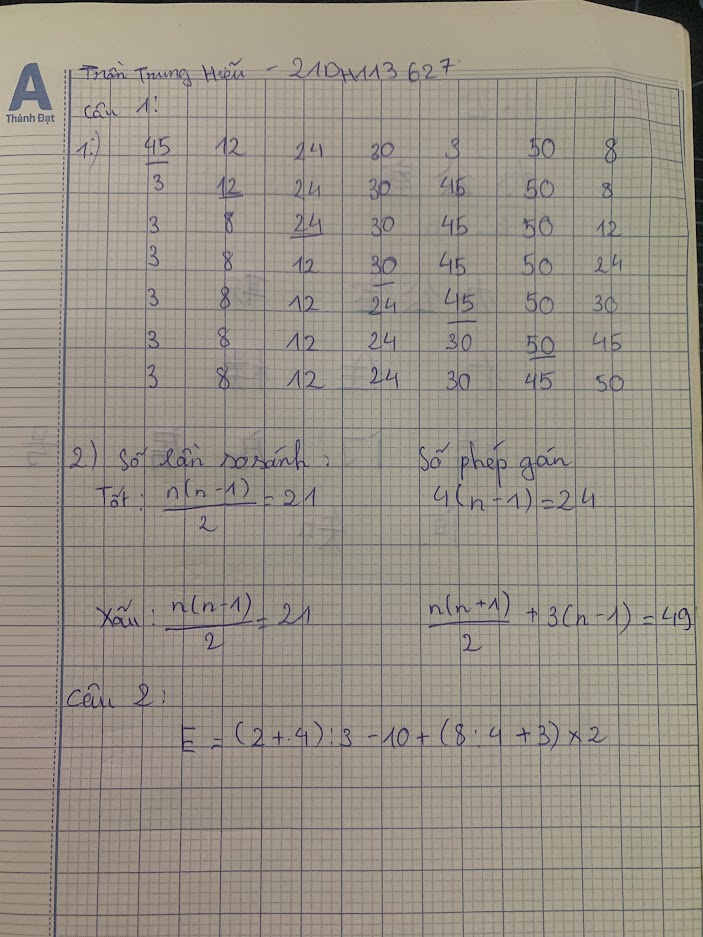 A
Thành Đạt
Trần Trung Hiếu - 21DH113627
Câu 1:
1:) 45 12 24 30 3 50 8
3 12 24 30 45 50 8
3 8 24 30 45 50 12
3 8 12 30 45 50 24
3 8 12 24 45 50 30
3 8 12 24 30 50 45
3 8 12 24 30 45 50
2) Số lần so sánh: Số phép gán
Tốt: n(n-1)/2 = 21 4(n-1)=24
Xấu: n(n-1)/2 = 21 n(n+1)/2 + 3(n-1) = 49
Câu 2:
E = (2+4):3 -10+(8:4+3)×2